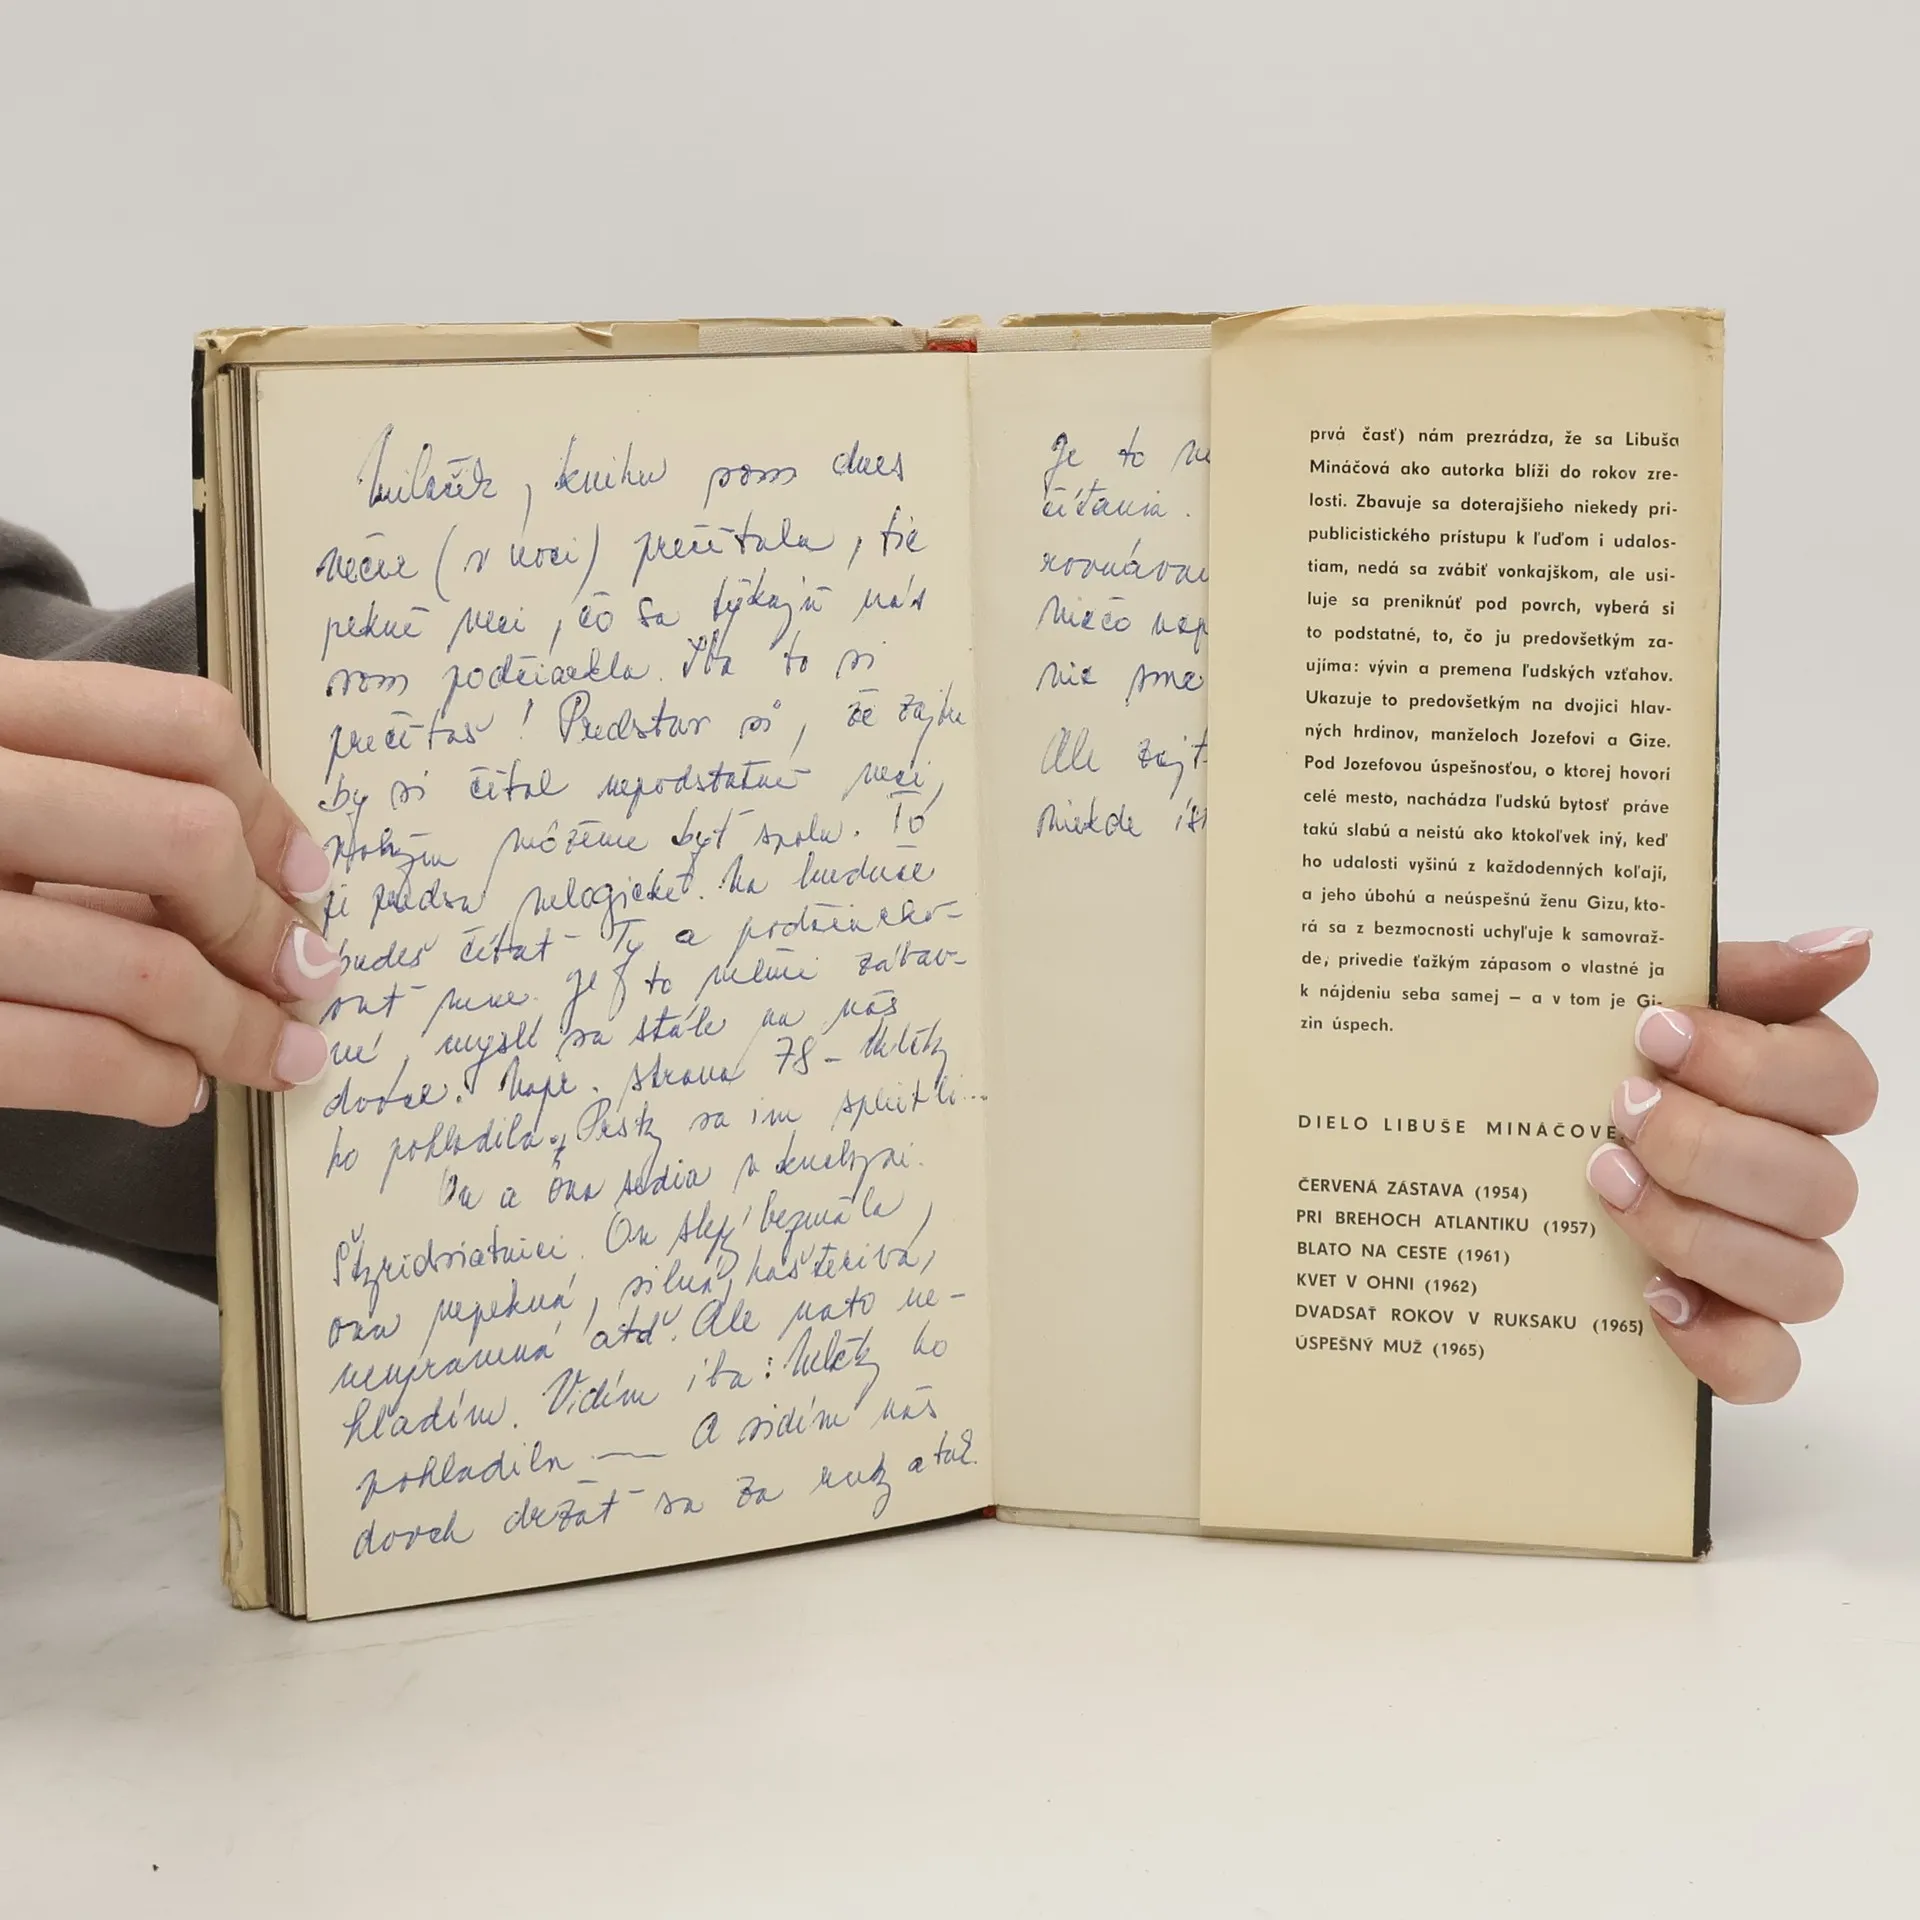 Miláčik, knihu som dnes
večer (v noci) prečítala, tie
pekné veci, čo sa týkajú nás
som podčiarkla. Iba to si
prečítaš! Predstav si, že zajtra
by si čítal nepodstatné veci,
môžeme byť spolu. To
je predsa nelogické. Na budúce
budeš čítať Ty a podčiarko-
vať mne. Je to veľmi zábav-
né, myslí sa stále na nás
dvoch. Napr. strana 78 - Všetky
ho pohladila. Prsty sa im splietli...
On a ona sedia v kuchyni.
Štyridsiatnici. On slepý bezmála,
ona nepekná, silná, kašterivá,
neupravená atď. Ale na to ne-
hľadím. Vidím iba: ho
pohladila — A vidím nás
dvoch držať sa za ruky a tak.
Je to
čítania.
niečo
nie sme
Ale
niekde
prvá časť) nám prezrádza, že sa Libuša
Mináčová ako autorka blíži do rokov zre-
losti. Zbavuje sa doterajšieho niekedy pri-
publicistického prístupu k ľuďom i udalos-
tiam, nedá sa zvábiť vonkajškom, ale usi-
luje sa preniknúť pod povrch, vyberá si
to podstatné, to, čo ju predovšetkým za-
ujíma: vývin a premena ľudských vzťahov.
Ukazuje to predovšetkým na dvojici hlav-
ných hrdinov, manželoch Jozefovi a Gize.
Pod Jozefovou úspešnosťou, o ktorej hovorí
celé mesto, nachádza ľudskú bytosť práve
takú slabú a neistú ako ktokoľvek iný, keď
ho udalosti vyšinú z každodenných koľají,
a jeho úbohú a neúspešnú ženu Gizu, kto-
rá sa z bezmocnosti uchyľuje k samovraž-
de, privedie ťažkým zápasom o vlastné ja
k nájdeniu seba samej – a v tom je Gi-
zin úspech.
DIELO LIBUŠE MINÁČOVE
ČERVENÁ ZÁSTAVA (1954)
PRI BREHOCH ATLANTIKU (1957)
BLATO NA CESTE (1961)
KVET V OHNI (1962)
DVADSAŤ ROKOV V RUKSAKU (1965)
ÚSPEŠNÝ MUŽ (1965)